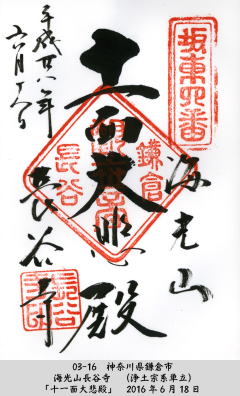 坂東四番
海光山
十一面大悲殿
鎌倉
長谷
長谷寺
平成廿八年
六月十八日
03-16　神奈川県鎌倉市
海光山長谷寺　（浄土宗系単立）
「十一面大悲殿」　2016年6月18日